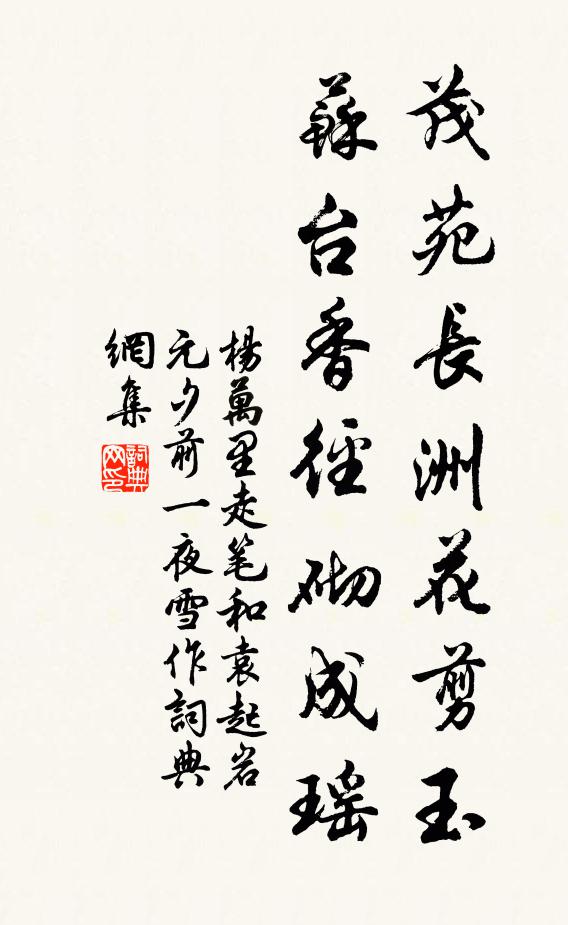 茂苑長洲花剪玉
蘇台香徑砌成瑶
楊萬里走笔和袁起岩
元夕前一夜雪作詞典
網集
詞典
网印